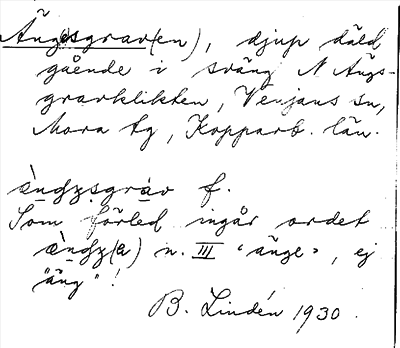 Ängesgrav(en), djup däld
gående i sväng N Ängs-
gravklikten, Venjans sn,
Mora tg, Kopparb. län.
ὲn̠dʒʒ̣grȧv f.
Som förled ingår ordet
ὲn̠dʒ(a) n. III "änge", ej
"äng"!
B. Lindén 1930.